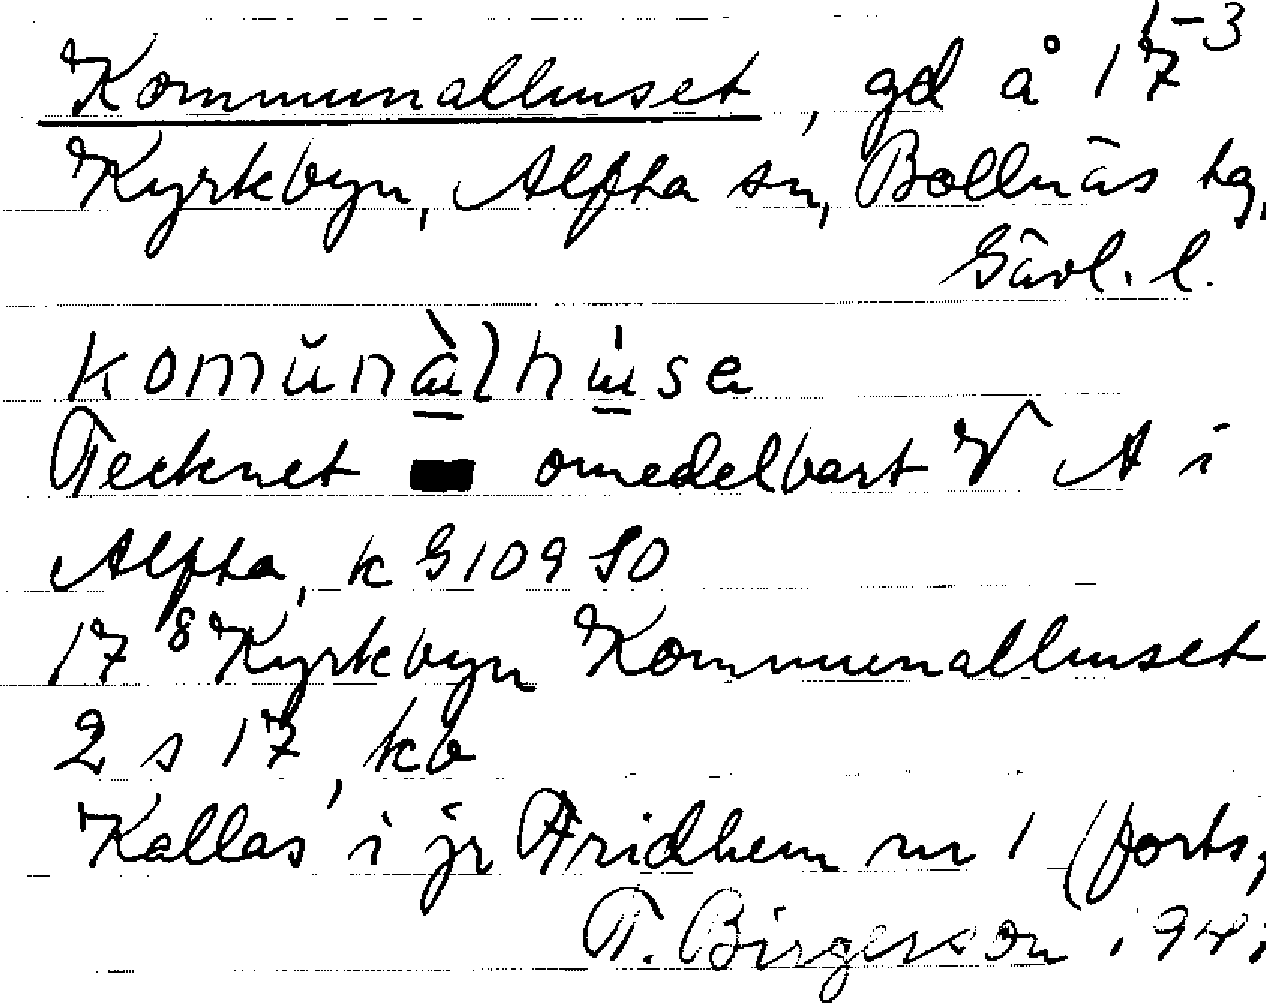 Kommunalhuset, gd å 17 1-3
Kyrkbyn, Alfta sn, Bollnäs tg,
Gävl. l.
komŭnàlhu̇se
Tecknet omedelbart V A i
Alfta, k G109 SO
17 8 Kyrkbyn Kommunalhuset
2 s 17, kb
Kallas i jr Fridhem nr 1 (forts,
T. Birgersson 194